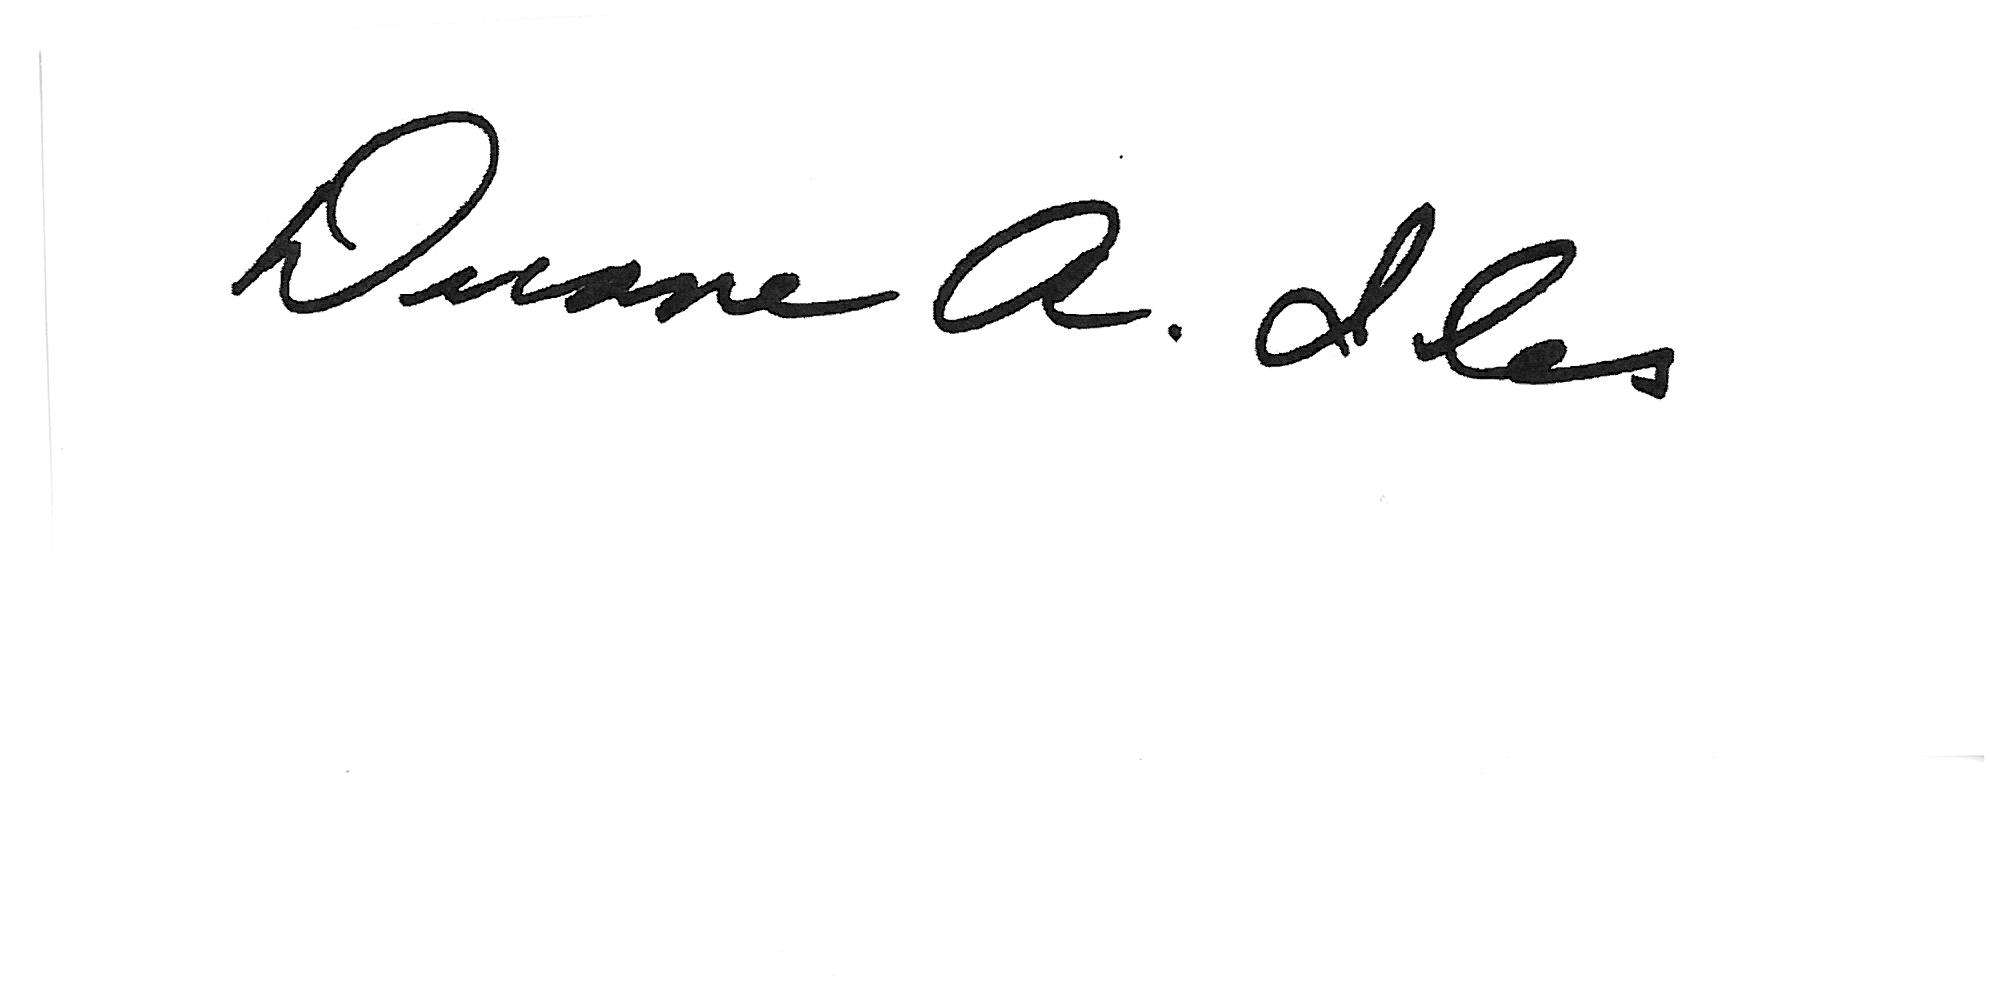 Duane A. Iles